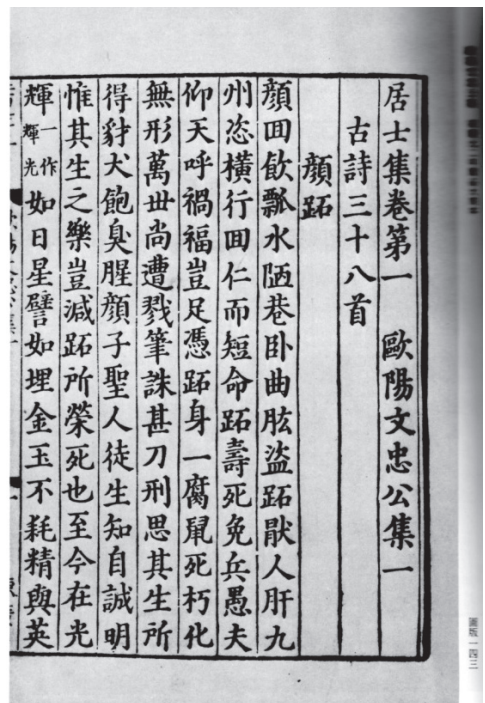 居士集卷第一　歐陽文忠公集一
古詩三十八首
顏跖
顏回飲瓢水陋巷卧曲肱盜跖猒人肝九
州恣橫行回仁而短命跖壽死免兵愚夫
仰天呼禍福豈足憑跖身一腐鼠死朽化
無形萬世尚遭戮筆誅甚刀刑思其生所
得豺犬飽臭腥顏子聖人徒生知自誠明
惟其生之樂豈減跖所榮死也至今在光
輝一作輝光如日星譬如埋金玉不耗精與英
圖版一四三